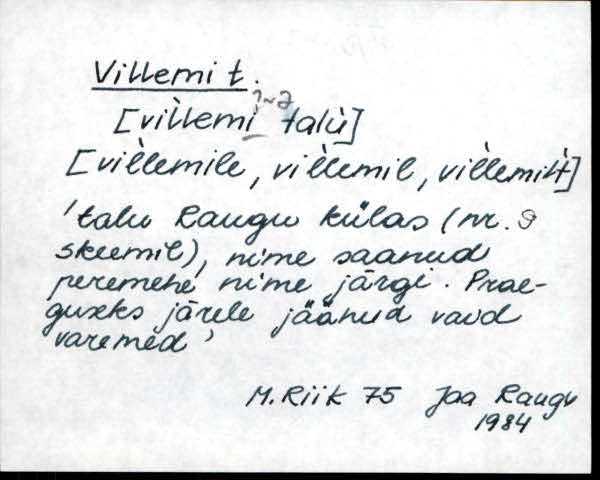 Villemi t.
[vìl̀lemi talù]
[vil̀lemile, vil̀lemil, vil̀lemilt]
'talu Raugu külas (nr. 9
skeemil), nime saanud
peremehe nime järgi. Prae-
guseks järele jäänud vaid
varemed'
M. Riik 75 Jaa Raugu
1984